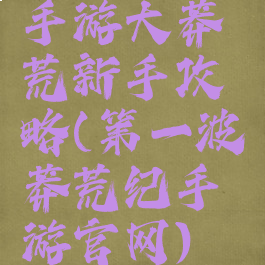 手游大莽
荒新手攻
略(第一波
莽荒纪手
游官网)